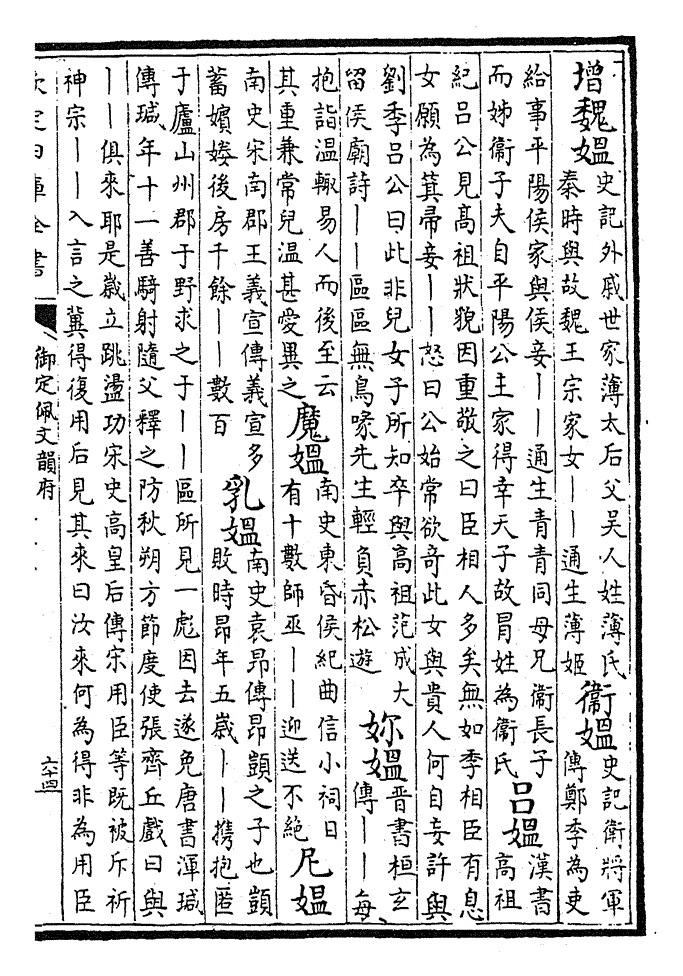 增魏媼
史記外戚世家薄太后父吳人姓薄氏
秦時與故魏王宗家女——通生薄姬
衞媼
史記衛將軍
傳鄭季為吏
給事平陽侯家與侯妾——通生青青同母兄衞長子
而姊衞子夫自平陽公主家得幸天子故冒姓為衞氏
呂媼
漢書
高祖
紀呂公見高祖狀貌因重敬之曰臣相人多矣無如季相臣有息
女願為箕帚妾——怒曰公始常欲奇此女與貴人何自妄許與
劉季呂公曰此非兒女子所知卒與高祖范成大
留侯廟詩——區區無鳥喙先生輕負赤松遊
妳媼
晉書桓玄
傳——每
抱詣溫輒易人而後至云
其重兼常兒溫甚愛異之
魔媼
南史東昏侯紀曲信小祠日
有十數師巫——迎送不絶
尼媼
南史宋南郡王義宣傳義宣多
蓄嬪媵後房千餘——數百
乳媼
南史袁昂傳昂顗之子也顗
敗時昂年五歲——携抱匿
于廬山州郡于野求之于——區所見一彪因去遂免唐書渾瑊
傳瑊年十一善騎射隨父釋之防秋朔方節度使張齊丘戲曰與
——俱來耶是歲立跳盪功宋史高皇后傳宋用臣等既被斥祈
神宗——入言之冀得復用后見其來曰汝來何為得非為用臣
欽定四庫全書
御定佩文韻府
六十四